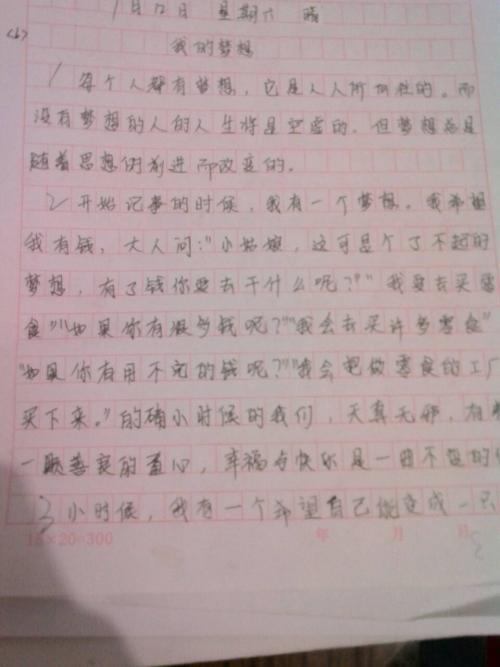 1月12日 星期六 晴
<6>
我的梦想
1 每个人都有梦想，它是人人所向往的。而
没有梦想的人的人生将是空虚的。但梦想总是
随着思想的前进而改变的。
2 开始记事的时候，我有一个梦想。我希望
我有钱，大人问："小姑娘，这可是个了不起的
梦想，有了钱你要去干什么呢？""我要去买零
食""如果你有很多钱呢？""我会去买许多零食"
"如果你有用不完的钱呢？""我会把做零食的工厂
买下来。"的确小时候的我们，天真无邪，有着
一颗善良的童心，幸福与快乐是一曲不变的
3 小时候，我有一个希望自己能变成一只
15×20=300 年 月 日